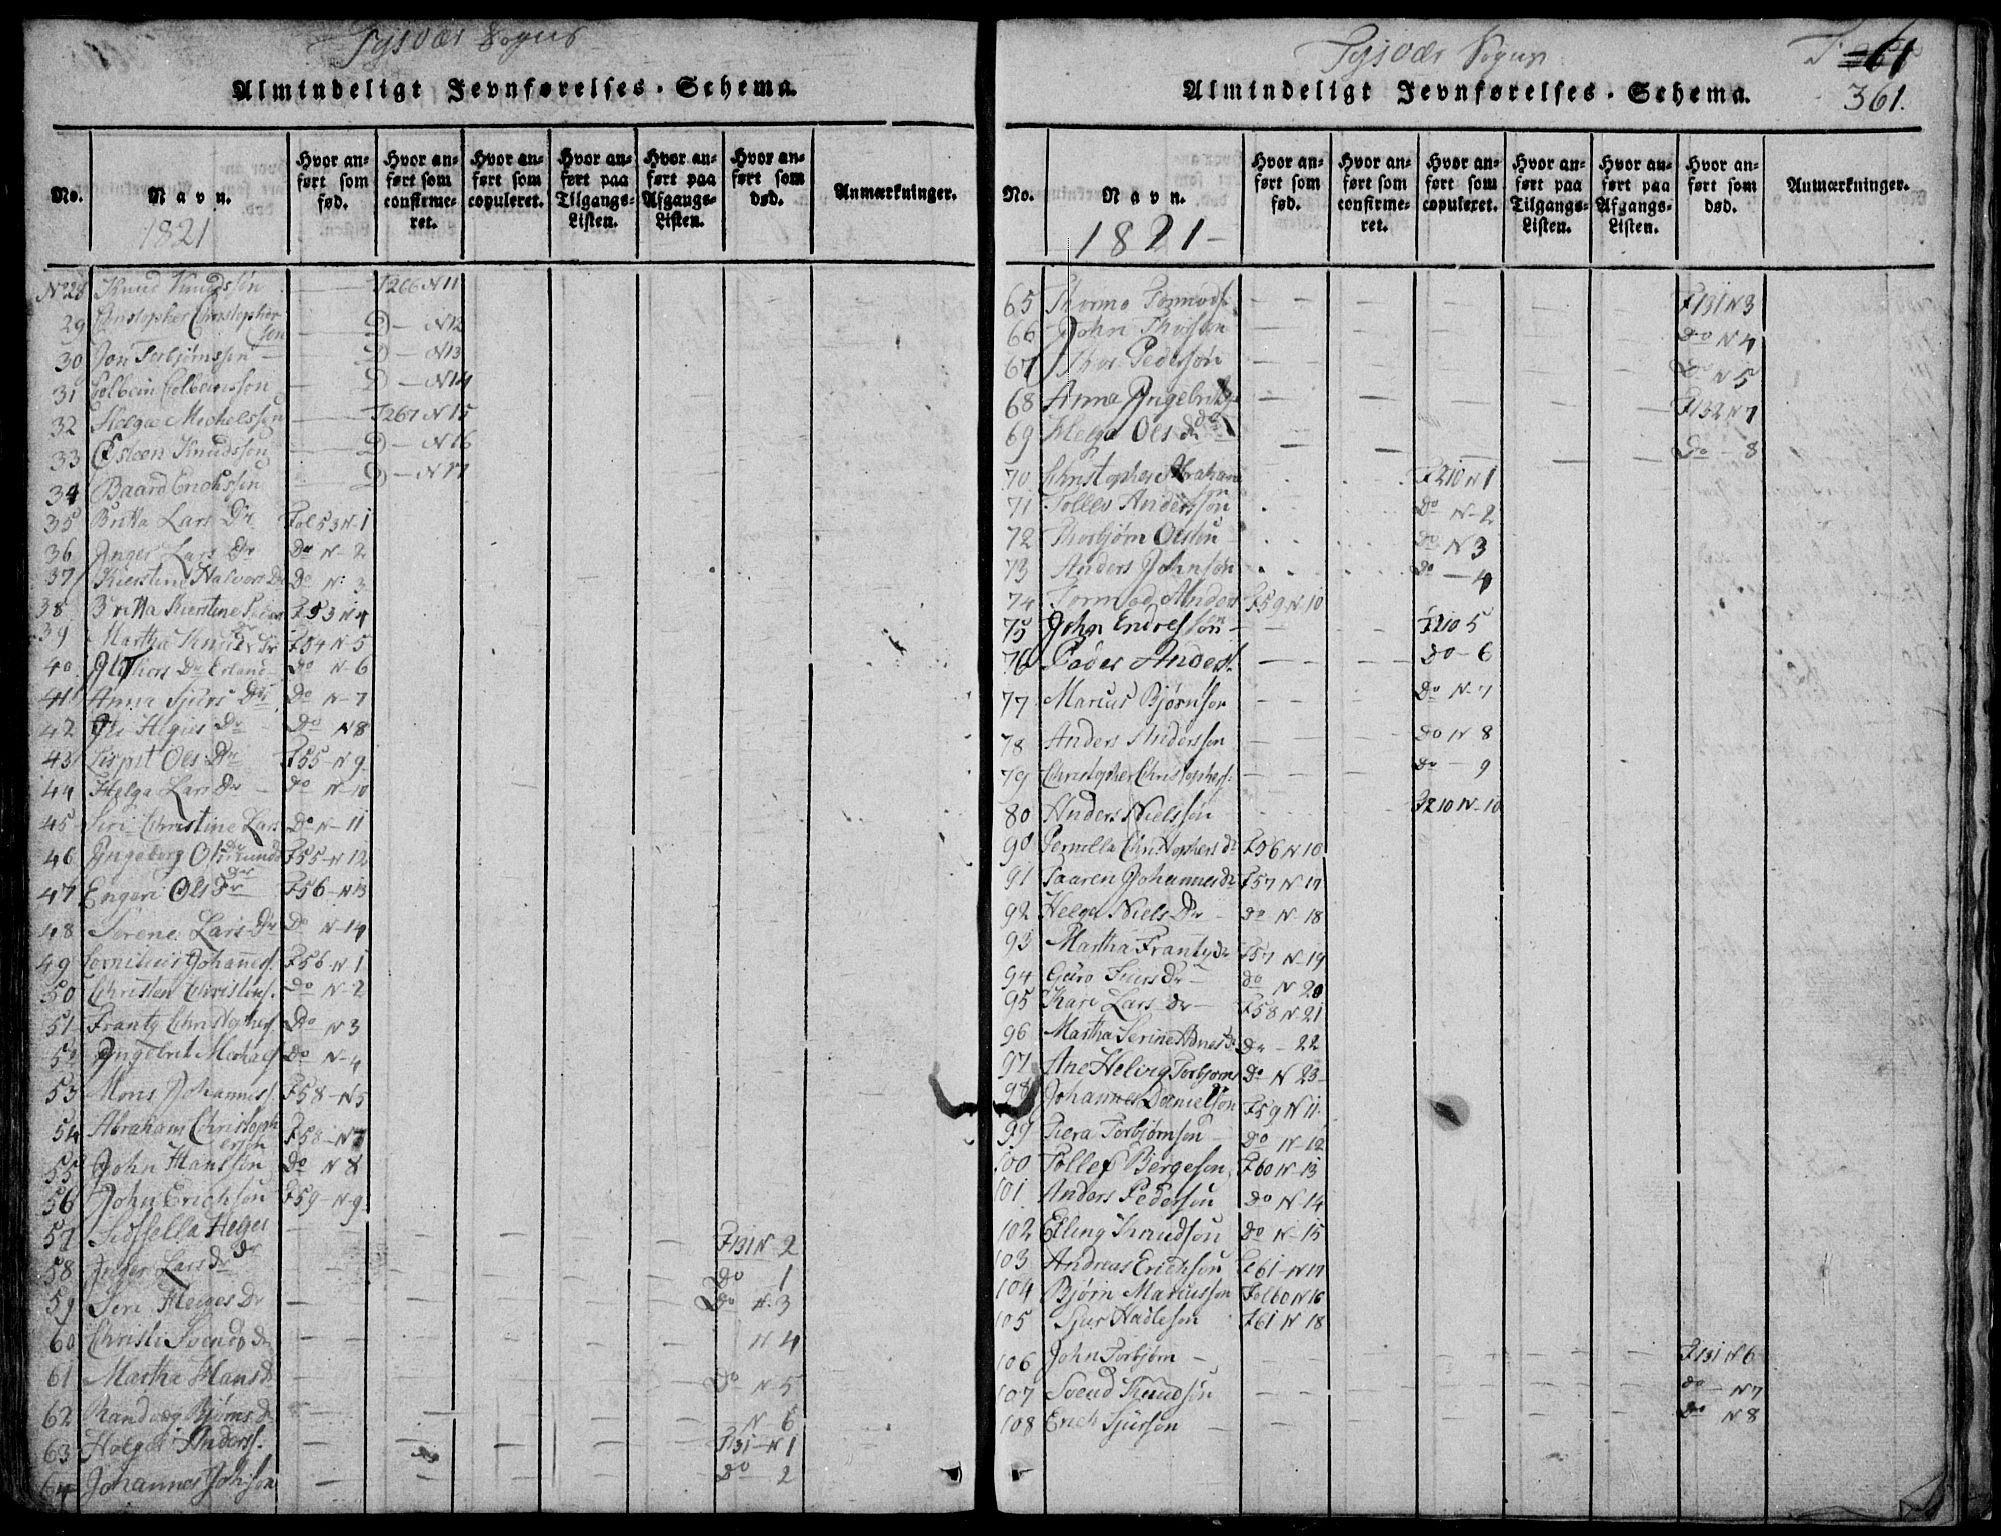 Tysvær Sogns
Almindeligt Jevnførelses-Schema.
No.
Navn.
1821
Hvor anført som fød.
Hvor anført som confirmeret.
Hvor anført som copuleret.
Hvor anført paa Tilgangs-Listen.
Hvor anført paa Afgangs-Listen.
Hvor anført som død.
Anmærkninger.
No 28 Knud Knudssøn — F266 N 11
29 Christopher Christophersøn — D — N 12
30 Jon Torbjørnssøn — D — N 13
31 Colbein Colbeinssøn — D — N 14
32 Helge Michelssøn — F267 N 15
33 Osteen Knudssøn — D — N 16
34 Baard Erichssøn — D — N 17
35 Britta Lars Dr Fol 53 N 1
36 Inger Lars Dr Do N 2
37 Kierstine Halvors Dr Do N 3
38 Britta Kierstine Peders Dr F53 N 4
39 Martha Knuds Dr F54 N 5
40 Dr Erland Do N 6
41 Anna Sjurs Dr Do N 7
42 Dr Do N 8
43 Lispet Ols Dr F55 N 9
44 Helga Lars Dr Do N 10
45 Siri Christine Lars Do N 11
46 Ingeborg Osmunds Dr F55 N 12
47 Engeri Ols Dr F56 N 13
48 Serene Lars Dr Do N 14
49 Cornilius Johanness. F56 N 1
50 Christen Christens. Do N 2
51 Frantz Christophers. Do N 3
52 Ingebret Michaels. Do N 4
53 Mons Johanness. F58 N 5
54 Abraham Christophersøn F58 N 7
55 John Hanssøn Do N 8
56 John Erichsøn F59 N 9
57 Sidssella Helges Dr F131 N 2
58 Inger Lars Dr Do 1
59 Siri Helges Dr Do N 3
60 Christi Svends Dr N 4
61 Martha Hans Dr Do N 5
62 Randveg Bjørns Dr N 6
63 Holger Anderss. F131 N 1
64 Johannes Johnsøn Do 2
Tysvær Sogns
61
361.
Almindeligt Jevnførelses-Schema.
No.
Navn.
1821
Hvor anført som fød.
Hvor anført som confirmeret.
Hvor anført som copuleret.
Hvor anført paa Tilgangs-Listen.
Hvor anført paa Afgangs-Listen.
Hvor anført som død.
Anmærkninger.
65 Thormo Tormods. F131 N 3
66 John Do N 4
67 Thor Pedersøn Do N 5
68 Anna Ingebrits Dr F132 N 7
69 Helga Ols Dr Do 8
70 Christopher Abrahamsøn F210 N 1
71 Tollef Anderssøn Do N 2
72 Thorbjørn Olsøn Do N 3
73 Anders Johnsøn Do 4
74 Tormod Anders F59 N 10
75 John Endressøn F210 5
76 Peder Anders. Do 6
77 Marcus Bjørnsøn Do N 7
78 Anders Anderssøn Do N 8
79 Christopher Christophers. Do 9
80 Anders Nielssøn F210 N 10
90 Pernilla Christophers Dr F56 N 10
91 Johannes Dr F57 N 17
92 Helga Niels Dr Do N 18
93 Martha Frantz Dr F57 N 19
94 Guro Siurs Dr Do N 20
95 Kari Lars Dr F58 N 21
96 Martha Serine Dr 22
97 Ane Helvig Torbjørns Do N 23
98 Johannes Danielsøn F59 N 11
99 Torbjørnsøn Do N 12
100 Tollef Bergesøn F60 N 13
101 Anders Pedersøn Do N 14
102 Elling Knudsøn Do N 15
103 Andreas Erichsøn F61 N 17
104 Bjørn Marcussøn Fol 60 N 16
105 Sjur Hadlesøn F61 N 18
106 John Torbjørn F131 N 6
107 Svend Knudsøn Do N 7
108 Erich Sjursøn Do N 8